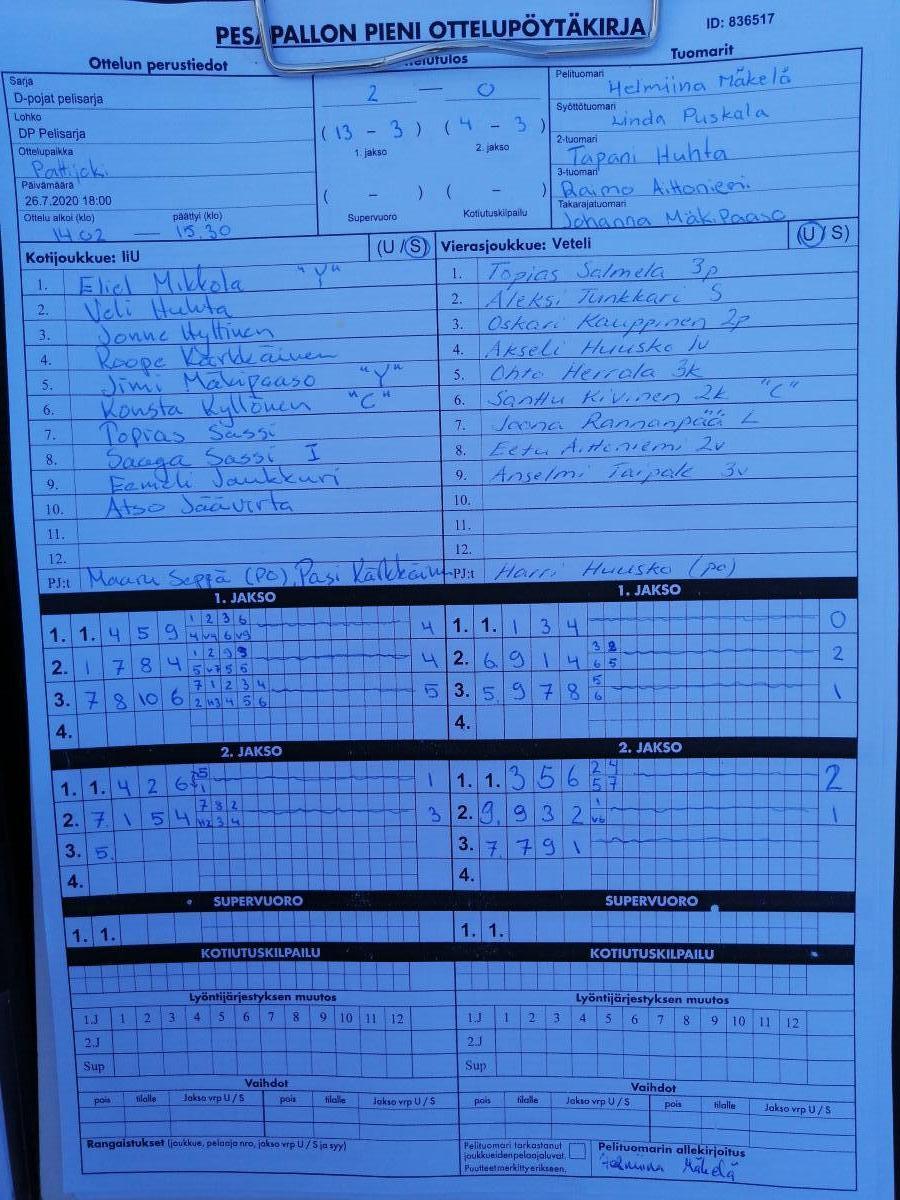 PESÄPALLON PIENI OTTELUPÖYTÄKIRJA
ID: 836517
Ottelun perustiedot
Tuomarit
Sarja
D-pojat pelisarja
Lohko
DP Pelisarja
Ottelupaikka
Pattijoki
Päivämäärä
26.7.2020 18:00
Ottelu alkoi (klo) päättyi (klo)
1402 — 15.30
2 — 0
( 13 - 3 ) ( 4 - 3 )
1. jakso 2. jakso
( - ) ( - )
Supervuoro Kotiutuskilpailu
Pelituomari
Helmiina Mäkelä
Syöttötuomari
Linda Puskala
2-tuomari
Tapani Huhta
3-tuomari
Raimo Aittoniemi
Takarajatuomari
Johanna Mäkipaaso
Kotijoukkue: IiU (U / S)
1. Eliel Mikkola "Y"
2. Veli Huhta
3. Jonne Hyttinen
4. Roope Kärkkäinen
5. Jimi Mäkipaaso "Y"
6. Konsta Kyllönen "C"
7. Topias Sassi
8. Saaga Sassi I
9. Eemeli Joukkuri
10. Atso Jäävirta
11.
12.
PJ:t Maaru Seppä (PO), Pasi Kärkkäinen
Vierasjoukkue: Veteli (U / S)
1. Topias Salmela 3p
2. Aleksi Tunkkari S
3. Oskari Kauppinen 2p
4. Akseli Huusko 1v
5. Ohto Herrala 3k
6. Santtu Kivinen 2k "C"
7. Joona Rannanpää L
8. Eetu Aittoniemi 2v
9. Anselmi Taipale 3v
10.
11.
12.
PJ:t Harri Huusko (po)
1. JAKSO
1. 1. 4 5 9 1 2 3 6 4
4 v9 6 v9
2. 1 7 8 4 4
3. 7 8 10 6 7 1 2 3 4 5
4.
1. JAKSO
1. 1. 1 3 4 0
2. 6 9 1 4 2
6 5
3. 5 9 7 8 5 1
6
4.
2. JAKSO
1. 1. 4 2 6 1
2. 7 1 5 4 3
3. 5
4.
2. JAKSO
1. 1. 3 5 6 2 4 2
5 7
2. 9 9 3 2 1 1
v6
3. 7 7 9 1
4.
SUPERVUORO
1. 1.
SUPERVUORO
1. 1.
KOTIUTUSKILPAILU
KOTIUTUSKILPAILU
Lyöntijärjestyksen muutos
1.J 1 2 3 4 5 6 7 8 9 10 11 12
2.J
Sup
Lyöntijärjestyksen muutos
1.J 1 2 3 4 5 6 7 8 9 10 11 12
2.J
Sup
Vaihdot
pois tilalle Jakso vrp U / S pois tilalle Jakso vrp U / S
Vaihdot
pois tilalle Jakso vrp U / S pois tilalle Jakso vrp U / S
Rangaistukset (joukkue, pelaaja nro, jakso vrp U / S ja syy)
Pelituomari tarkastanut
joukkueiden pelaajaluvat.
Puutteet merkitty erikseen.
Pelituomarin allekirjoitus
Helmiina Mäkelä